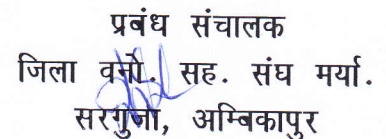 प्रबंध संचालक
जिला वनो. सह. संघ मर्या.
सरगुजा, अम्बिकापुर